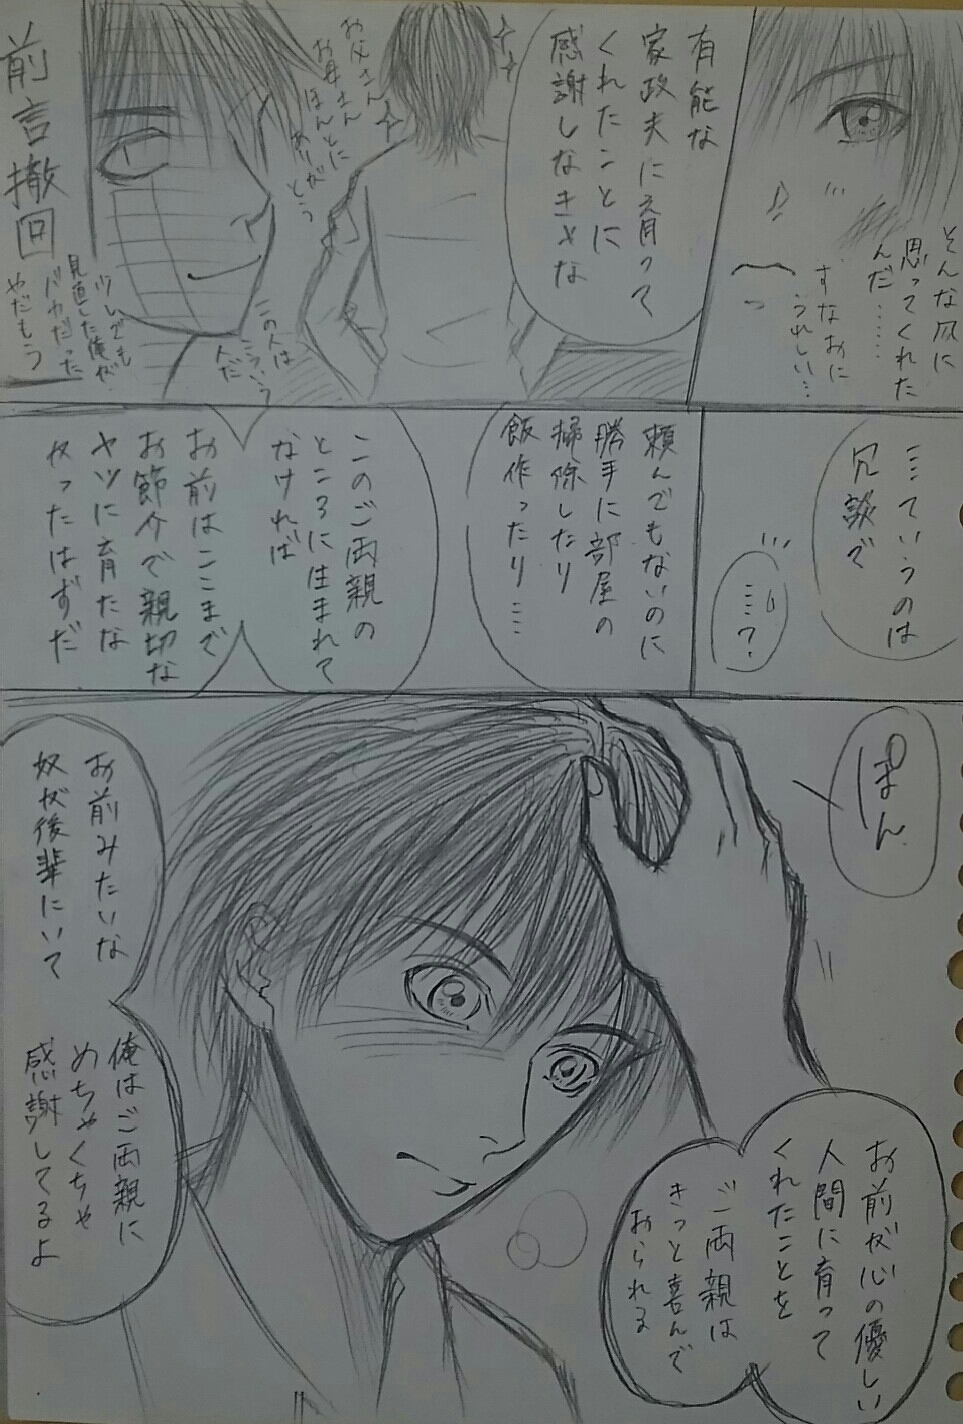 そんな風に
思ってくれた
んだ……
すなおに
うれしい…
っ
有能な
家政夫に育って
くれたことに
感謝しなきゃな
お父さん
お母さん
ほんとに
ありが
とう
この人は
こういう
人だ
前言撤回
少しでも
見直した俺が
バカだった
やだもう
……ていうのは
冗談で
……?
頼んでもないのに
勝手に部屋の
掃除したり
飯作ったり……
このご両親の
ところに生まれて
なければ
お前はここまで
お節介で親切な
ヤツに育たな
かったはずだ
ぽん
お前が心の優しい
人間に育って
くれたことを
ご両親は
きっと喜んで
おられる
お前みたいな
奴が後輩にいて
俺はご両親に
めちゃくちゃ
感謝してるよ